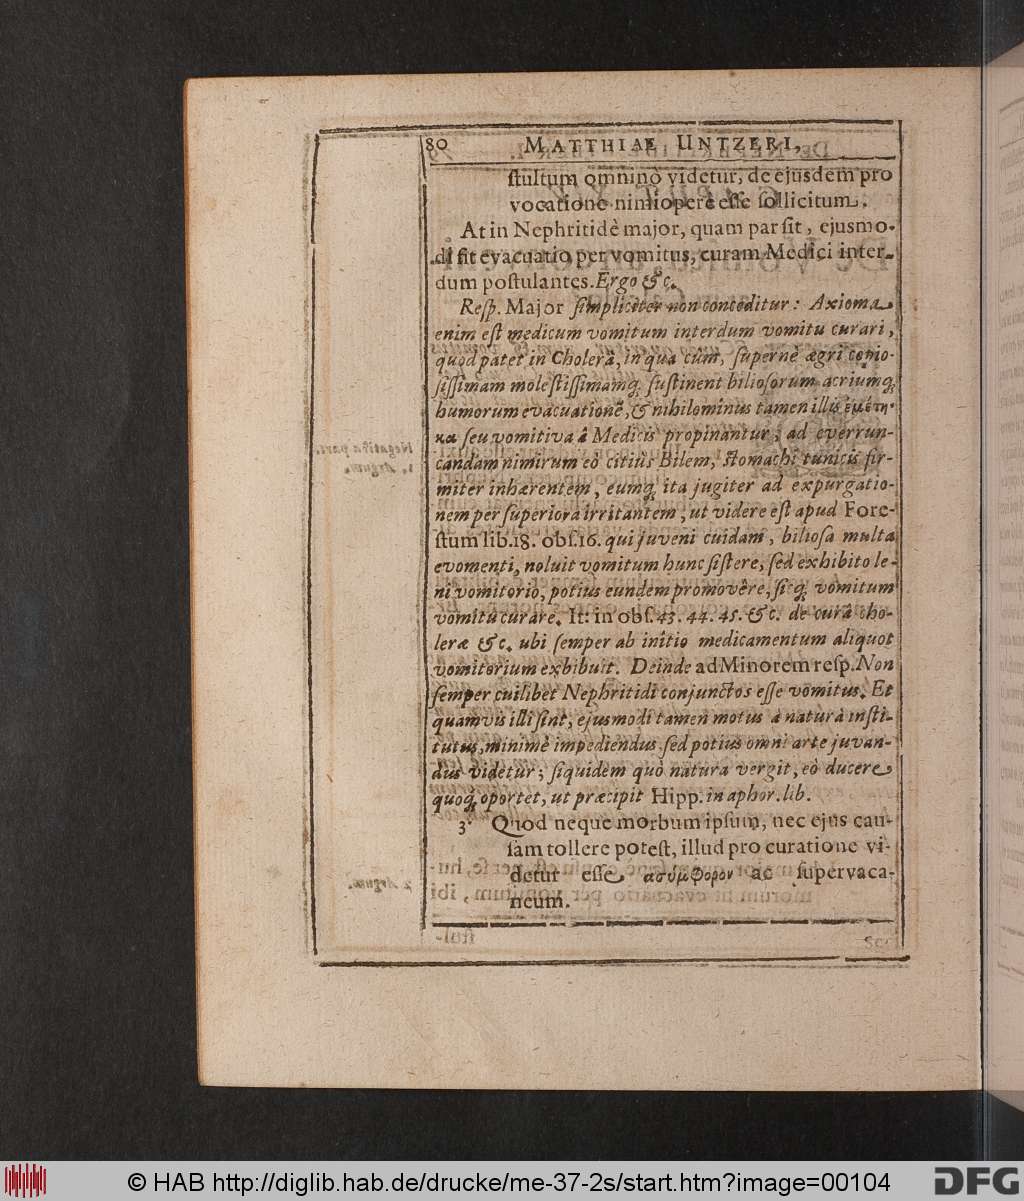 80 MATTHIAE UNTZERI,
ſtultum omnino videtur, de ejusdem pro
vocatione nimiopere eſſe ſollicitum.
At in Nephritidè major, quam par ſit, ejusmo-
di ſit evacuatio per vomitus, curam Medici inter-
dum poſtulantes. Ergo &c.
Reſp. Major ſimpliciter non conceditur: Axioma
enim eſt medicum vomitum interdum vomitu curari,
quod patet in Cholerâ, in qua cùm, ſupernè ægri copio-
ſiſſimam moleſtiſſimamq; ſuſtinent bilioſorum acriumq;
humorum evacuationē, & nihilominus tamen illis ἐμέτη-
κα ſeu vomitiva â Medicis propinantur, ad everrun-
candam nimirum eò citiùs Bilem, ſtomachi tunicis fir-
miter inhærentem, eumq; ita jugiter ad expurgatio-
nem per ſuperiora irritantem, ut videre eſt apud Fore-
ſtum lib. 18. obſ. 16. qui juveni cuidam, bilioſa multa
evomenti, noluit vomitum hunc ſiſtere, ſed exhibito le-
ni vomitorio, potius eundem promovêre, ſicq; vomitum
vomitu curare. It: in obſ. 43. 44. 45. &c. de curâ cho-
leræ &c. ubi ſemper ab initio medicamentum aliquot
vomitorium exhibuit. Deinde ad Minorem reſp. Non
ſemper cuilibet Nephritidi conjunctos eſſe vomitus. Et
quamvis illi ſint, ejusmodi tamen motus à naturà inſti-
tutus, minimè impediendus, ſed potius omni arte juvan-
dus videtur; ſiquidem quò natura vergit, eò ducere
quoq; oportet, ut præcipit Hipp. in aphor. lib.
3. Quod neque morbum ipſum, nec ejus cau-
ſam tollere poteſt, illud pro curatione vi-
detur eſſe ασύμφορον ac ſupervaca-
neum.
© HAB http://diglib.hab.de/drucke/me-37-2s/start.htm?image=00104
DFG